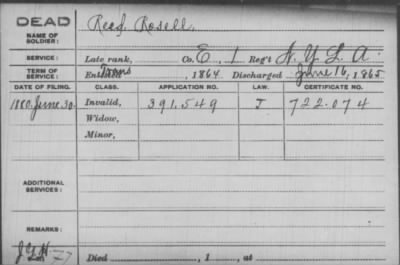 DEAD
NAME OF SOLDIER: Reed Rosell,
SERVICE: Late rank, Co. E, 1 Reg't N. Y. L. A.
TERM OF SERVICE: Enlisted , 1864, Discharged June 16, 1865
DATE OF FILING. CLASS. APPLICATION NO. LAW. CERTIFICATE NO.
1880 June 30. Invalid, 391.549 J 722.074
Widow,
Minor,
ADDITIONAL SERVICES:
REMARKS:
Died , 1 , at